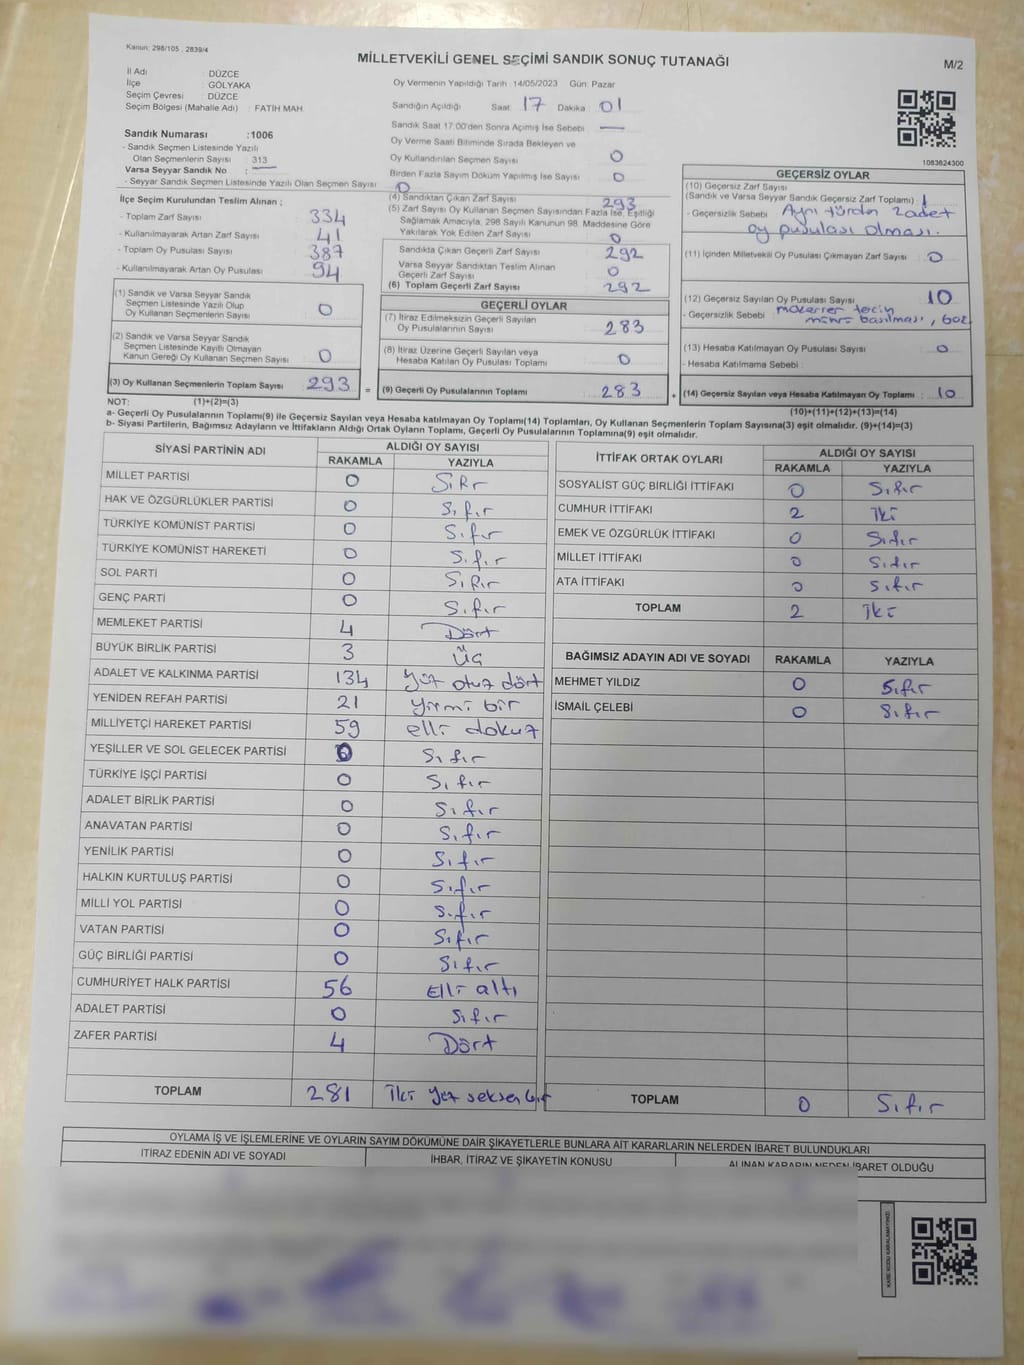 Kanun: 298/105 , 2839/4
MİLLETVEKİLİ GENEL SEÇİMİ SANDIK SONUÇ TUTANAĞI
M/2
İl Adı : DÜZCE
İlçe : GÖLYAKA
Seçim Çevresi : DÜZCE
Seçim Bölgesi (Mahalle Adı) : FATİH MAH.
Oy Vermenin Yapıldığı Tarih : 14/05/2023 Gün: Pazar
Sandığın Açıldığı Saat 17 Dakika : 01
Sandık Saat 17:00'den Sonra Açımış İse Sebebi —
Oy Verme Saati Bitiminde Sırada Bekleyen ve
Oy Kullandırılan Seçmen Sayısı 0
Birden Fazla Sayım Döküm Yapılmış İse Sayısı 0
1083624300
Sandık Numarası :1006
- Sandık Seçmen Listesinde Yazılı
Olan Seçmenlerin Sayısı : 313
Varsa Seyyar Sandık No : —
- Seyyar Sandık Seçmen Listesinde Yazılı Olan Seçmen Sayısı : 0
İlçe Seçim Kurulundan Teslim Alınan ;
- Toplam Zarf Sayısı : 334
- Kullanılmayarak Artan Zarf Sayısı : 41
- Toplam Oy Pusulası Sayısı : 387
- Kullanılmayarak Artan Oy Pusulası : 94
(1) Sandık ve Varsa Seyyar Sandık
Seçmen Listesinde Yazılı Olup
Oy Kullanan Seçmenlerin Sayısı : 0
(2) Sandık ve Varsa Seyyar Sandık
Seçmen Listesinde Kayıtlı Olmayan
Kanun Gereği Oy Kullanan Seçmen Sayısı : 0
(3) Oy Kullanan Seçmenlerin Toplam Sayısı : 293 =
(4) Sandıktan Çıkan Zarf Sayısı 293
(5) Zarf Sayısı Oy Kullanan Seçmen Sayısından Fazla İse, Eşitliği
Sağlamak Amacıyla, 298 Sayılı Kanunun 98. Maddesine Göre
Yakılarak Yok Edilen Zarf Sayısı : 0
Sandıkta Çıkan Geçerli Zarf Sayısı 292
Varsa Seyyar Sandıktan Teslim Alınan
Geçerli Zarf Sayısı : 0
(6) Toplam Geçerli Zarf Sayısı : 292
GEÇERLİ OYLAR
(7) İtiraz Edilmeksizin Geçerli Sayılan
Oy Pusulalarının Sayısı : 283
(8) İtiraz Üzerine Geçerli Sayılan veya
Hesaba Katılan Oy Pusulası Toplamı : 0
(9) Geçerli Oy Pusulalarının Toplamı : 283 +
GEÇERSİZ OYLAR
(10) Geçersiz Zarf Sayısı
(Sandık ve Varsa Seyyar Sandık Geçersiz Zarf Toplamı) : 1
- Geçersizlik Sebebi : Aynı türden 2 adet
oy pusulası olması.
(11) İçinden Milletvekili Oy Pusulası Çıkmayan Zarf Sayısı : 0
(12) Geçersiz Sayılan Oy Pusulası Sayısı : 10
- Geçersizlik Sebebi : mükerrer tercih
mührü basılması,
(13) Hesaba Katılmayan Oy Pusulası Sayısı : 0
- Hesaba Katılmama Sebebi :
(14) Geçersiz Sayılan veya Hesaba Katılmayan Oy Toplamı : 10
NOT: (1)+(2)=(3)
(10)+(11)+(12)+(13)=(14)
a- Geçerli Oy Pusulalarının Toplamı(9) ile Geçersiz Sayılan veya Hesaba katılmayan Oy Toplamı(14) Toplamları, Oy Kullanan Seçmenlerin Toplam Sayısına(3) eşit olmalıdır. (9)+(14)=(3)
b- Siyasi Partilerin, Bağımsız Adayların ve İttifakların Aldığı Ortak Oyların Toplamı, Geçerli Oy Pusulalarının Toplamına(9) eşit olmalıdır.
SİYASİ PARTİNİN ADI ALDIĞI OY SAYISI
RAKAMLA YAZIYLA
MİLLET PARTİSİ 0 Sıfır
HAK VE ÖZGÜRLÜKLER PARTİSİ 0 Sıfır
TÜRKİYE KOMÜNİST PARTİSİ 0 Sıfır
TÜRKİYE KOMÜNİST HAREKETİ 0 Sıfır
SOL PARTİ 0 Sıfır
GENÇ PARTİ 0 Sıfır
MEMLEKET PARTİSİ 4 Dört
BÜYÜK BİRLİK PARTİSİ 3 Üç
ADALET VE KALKINMA PARTİSİ 134 yüz otuz dört
YENİDEN REFAH PARTİSİ 21 yirmi bir
MİLLİYETÇİ HAREKET PARTİSİ 59 elli dokuz
YEŞİLLER VE SOL GELECEK PARTİSİ 0 Sıfır
TÜRKİYE İŞÇİ PARTİSİ 0 Sıfır
ADALET BİRLİK PARTİSİ 0 Sıfır
ANAVATAN PARTİSİ 0 Sıfır
YENİLİK PARTİSİ 0 Sıfır
HALKIN KURTULUŞ PARTİSİ 0 Sıfır
MİLLİ YOL PARTİSİ 0 Sıfır
VATAN PARTİSİ 0 Sıfır
GÜÇ BİRLİĞİ PARTİSİ 0 Sıfır
CUMHURİYET HALK PARTİSİ 56 Elli altı
ADALET PARTİSİ 0 Sıfır
ZAFER PARTİSİ 4 Dört
TOPLAM 281 İki yüz seksen bir
İTTİFAK ORTAK OYLARI ALDIĞI OY SAYISI
RAKAMLA YAZIYLA
SOSYALİST GÜÇ BİRLİĞİ İTTİFAKI 0 Sıfır
CUMHUR İTTİFAKI 2 İki
EMEK VE ÖZGÜRLÜK İTTİFAKI 0 Sıfır
MİLLET İTTİFAKI 0 Sıfır
ATA İTTİFAKI 0 Sıfır
TOPLAM 2 İki
BAĞIMSIZ ADAYIN ADI VE SOYADI RAKAMLA YAZIYLA
MEHMET YILDIZ 0 Sıfır
İSMAİL ÇELEBİ 0 Sıfır
TOPLAM 0 Sıfır
OYLAMA İŞ VE İŞLEMLERİNE VE OYLARIN SAYIM DÖKÜMÜNE DAİR ŞİKAYETLERLE BUNLARA AİT KARARLARIN NELERDEN İBARET BULUNDUKLARI
İTİRAZ EDENİN ADI VE SOYADI İHBAR, İTİRAZ VE ŞİKAYETİN KONUSU ALINAN KARARIN NEDEN İBARET OLDUĞU
KARE KODU KARALAMAYINIZ!